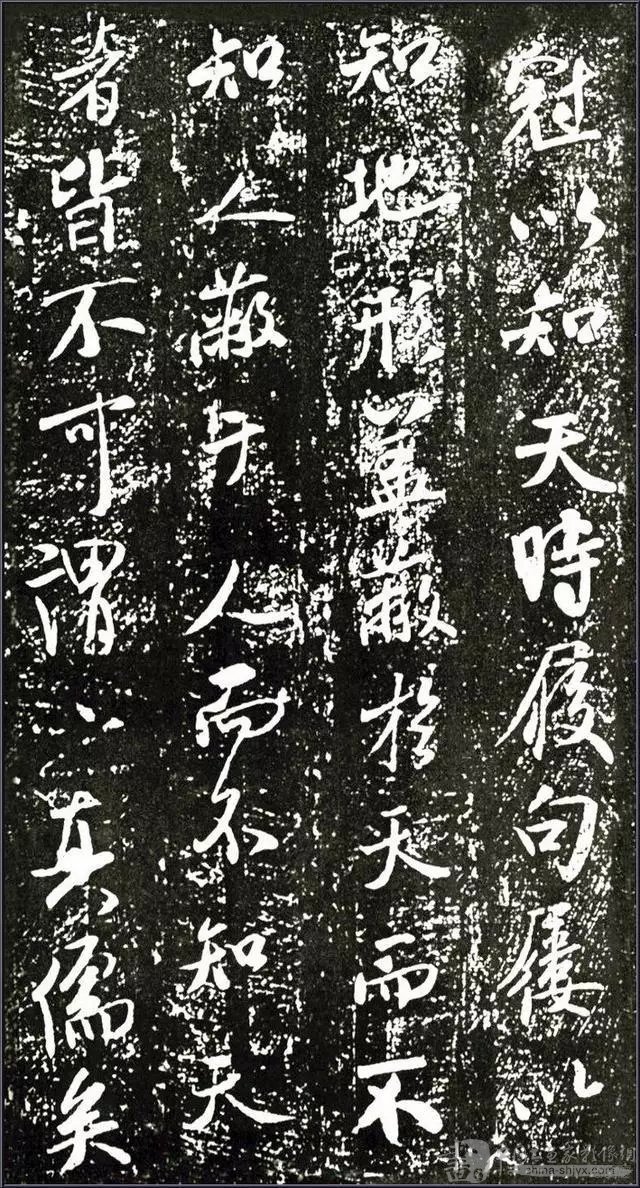 冠以知天時履句屨以
知地形蓋蔽於天而不
知人蔽于人而不知天
者皆不可謂之真儒矣
china-shjyx.com